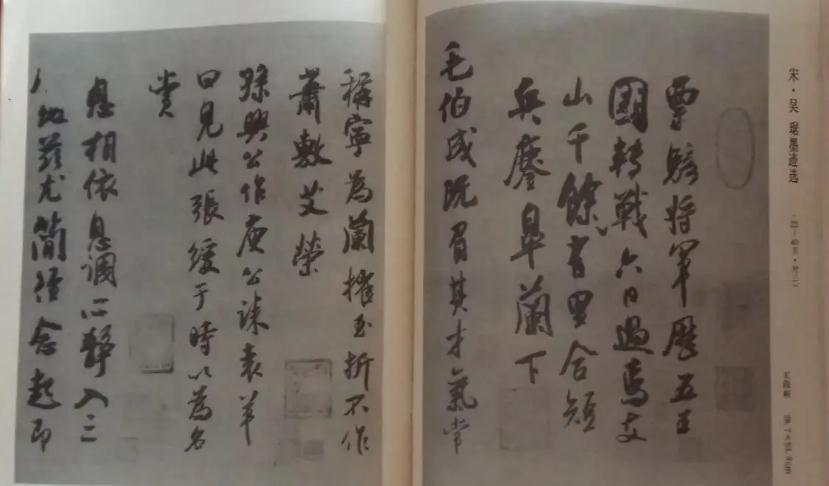 宋·吴 琚墨迹选
票騎将軍歷五王
國轉戰六日過焉支
山千餘有里合短
兵鏖皋蘭下
毛伯成既負其才氣常
稱寧為蘭摧玉折不作
蕭敷艾榮
孫興公作庾公誄袁羊
曰見此張緩于時以為名
賞
息相依息調心靜入三
地茲尤簡徑念起即